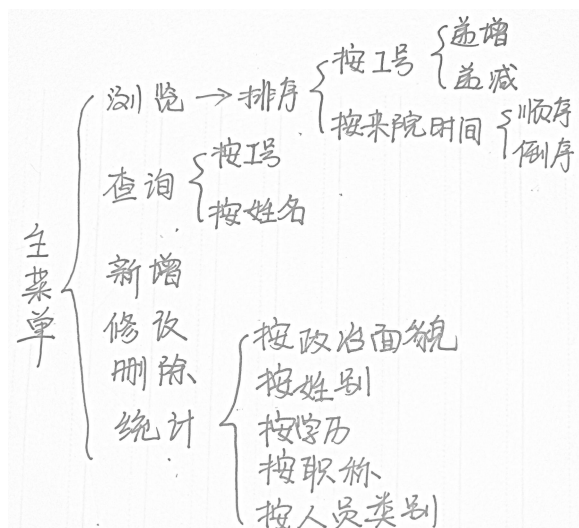 主菜单
浏览→排序
按工号
递增
递减
按来院时间
顺序
倒序
查询
按工号
按姓名
新增
修改
删除
统计
按政治面貌
按姓别
按学历
按职称
按人员类别